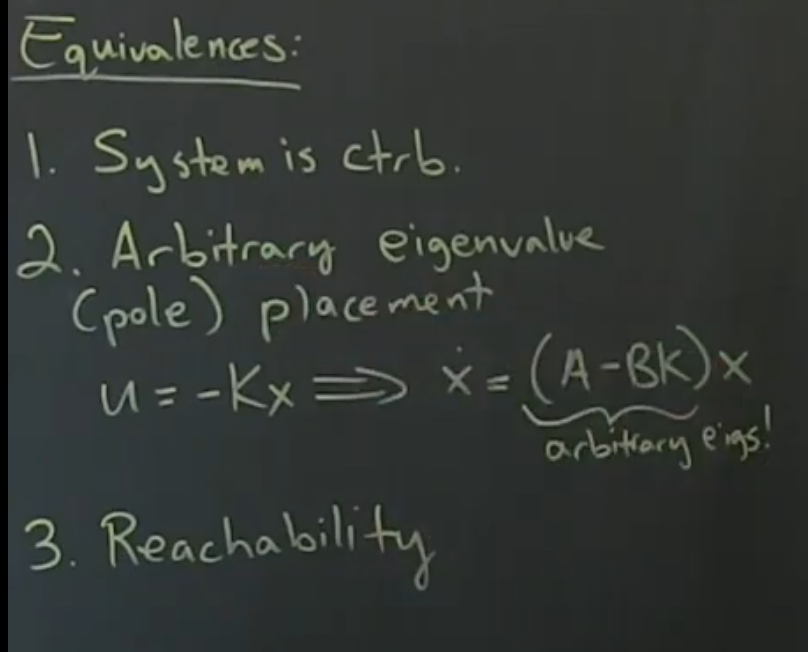 Equivalences:
1. System is ctrb.
2. Arbitrary eigenvalue
(pole) placement
u = -Kx ⟹ ẋ = (A-BK)x
arbitrary eigs!
3. Reachability